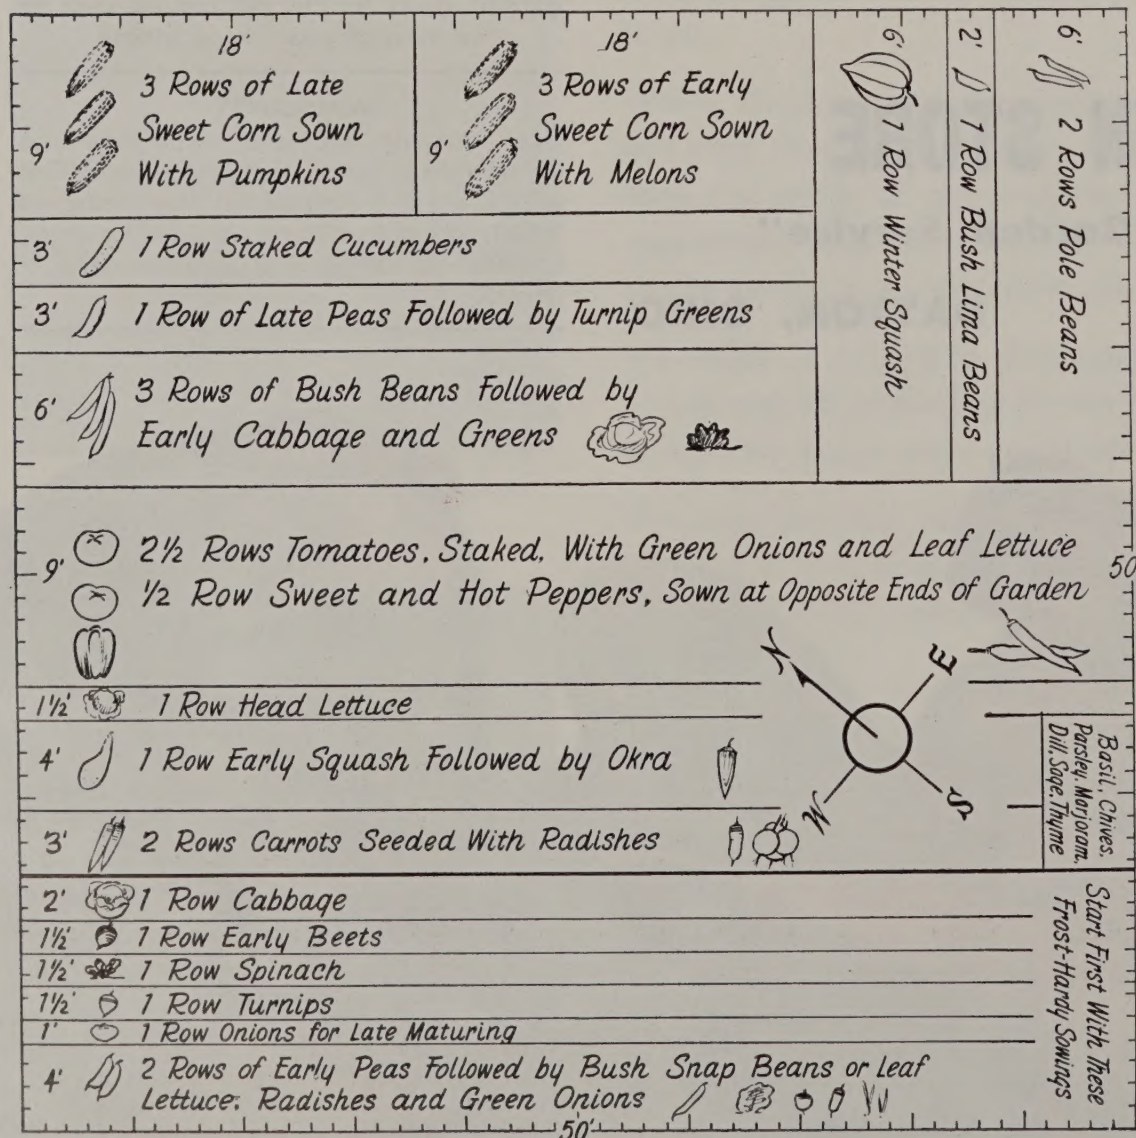 18'
3 Rows of Late
Sweet Corn Sown
With Pumpkins
9'
18'
3 Rows of Early
Sweet Corn Sown
With Melons
9'
6'
1 Row Winter Squash
2'
1 Row Bush Lima Beans
6'
2 Rows Pole Beans
3' 1 Row Staked Cucumbers
3' 1 Row of Late Peas Followed by Turnip Greens
6' 3 Rows of Bush Beans Followed by
Early Cabbage and Greens
9' 2½ Rows Tomatoes, Staked, With Green Onions and Leaf Lettuce
½ Row Sweet and Hot Peppers, Sown at Opposite Ends of Garden
50'
N
E
S
W
1½' 1 Row Head Lettuce
4' 1 Row Early Squash Followed by Okra
3' 2 Rows Carrots Seeded With Radishes
Basil, Chives,
Parsley, Marjoram,
Dill, Sage, Thyme
2' 1 Row Cabbage
1½' 1 Row Early Beets
1½' 1 Row Spinach
1½' 1 Row Turnips
1' 1 Row Onions for Late Maturing
4' 2 Rows of Early Peas Followed by Bush Snap Beans or Leaf
Lettuce, Radishes and Green Onions
Start First With These
Frost-Hardy Sowings
50'